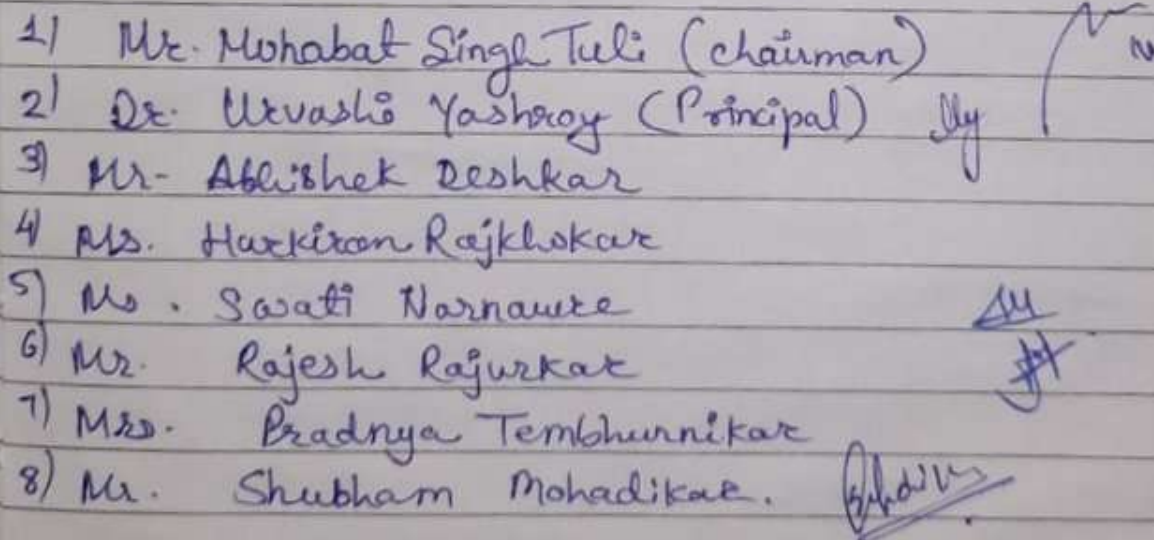 1) Mr. Mohabat Singh Tuli (Chairman)
2) Dr. Urvashi Yashroy (Principal)
3) Mr- Abhishek Deshkar
4) Ms. Harkiran Rajkhokar
5) Ms. Swati Narnaure
6) Mr. Rajesh Rajurkar
7) Mrs. Pradnya Tembhurnikar
8) Mr. Shubham Mohadikar.